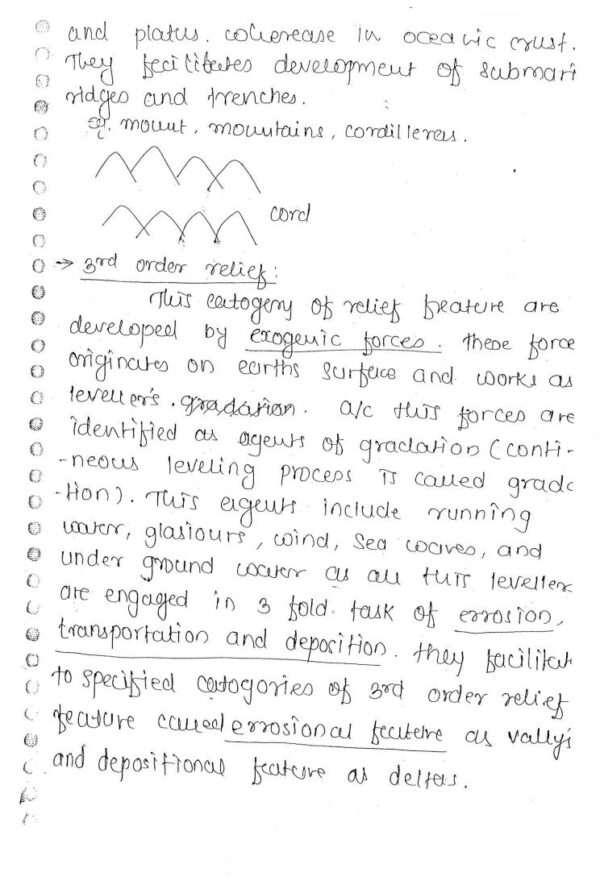 and platus. wherease in oceanic crust.
They fecilitates development of submari
ridges and trenches.
eg. mount, mountains, cordilleres.
cord
→ 3rd order relief:
This catogery of relief feature are
developed by exogenic forces. these force
originates on earths surface and works as
leveller's. gradation. a/c this forces are
identified as agents of gradation (conti-
-neous leveling process is called grada
-tion). This agents include running
water, glasiours, wind, sea waves, and
under ground water as all this leveller
are engaged in 3 fold task of errosion,
transportation and deposition. they facilitat
to specified catogories of 3rd order relief
feature called errosional feature as vally's
and depositional feature as deltas.